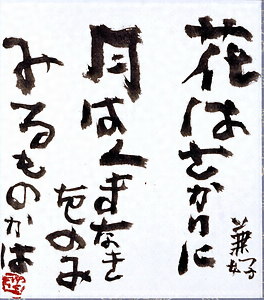 花はさかりに
兼好
月はくまなき
をのみ
みるものかは